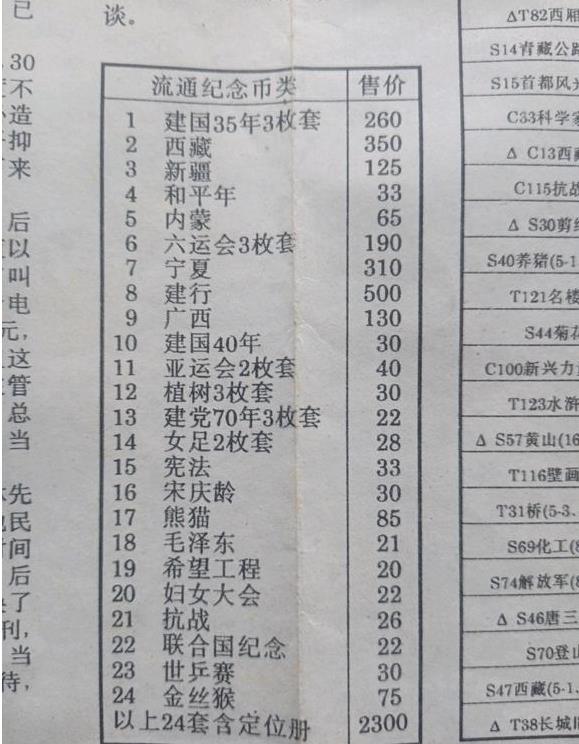 已
谈。
30
不
造
抑
来
后
以
叫
电
元,
这
管
总
当
先
民
间
后
了
刊,
当
待,
流通纪念币类 售价
1 建国35年3枚套 260
2 西藏 350
3 新疆 125
4 和平年 33
5 内蒙 65
6 六运会3枚套 190
7 宁夏 310
8 建行 500
9 广西 130
10 建国40年 30
11 亚运会2枚套 40
12 植树3枚套 30
13 建党70年3枚套 22
14 女足2枚套 28
15 宪法 33
16 宋庆龄 30
17 熊猫 85
18 毛泽东 21
19 希望工程 20
20 妇女大会 22
21 抗战 26
22 联合国纪念 22
23 世乒赛 30
24 金丝猴 75
以上24套含定位册 2300
ΔT82西厢
S14青藏公路
S15首都风光
C33科学家
Δ C13西藏
C115抗战
Δ S30剪纸
S40养猪(5-1
T121名楼
S44菊花
C100新兴力量
T123水浒
Δ S57黄山(16
T116壁画
T31桥(5-3、
S69化工(8
S74解放军(8
Δ S46唐三
S70登山
S47西藏(5-1、
Δ T38长城